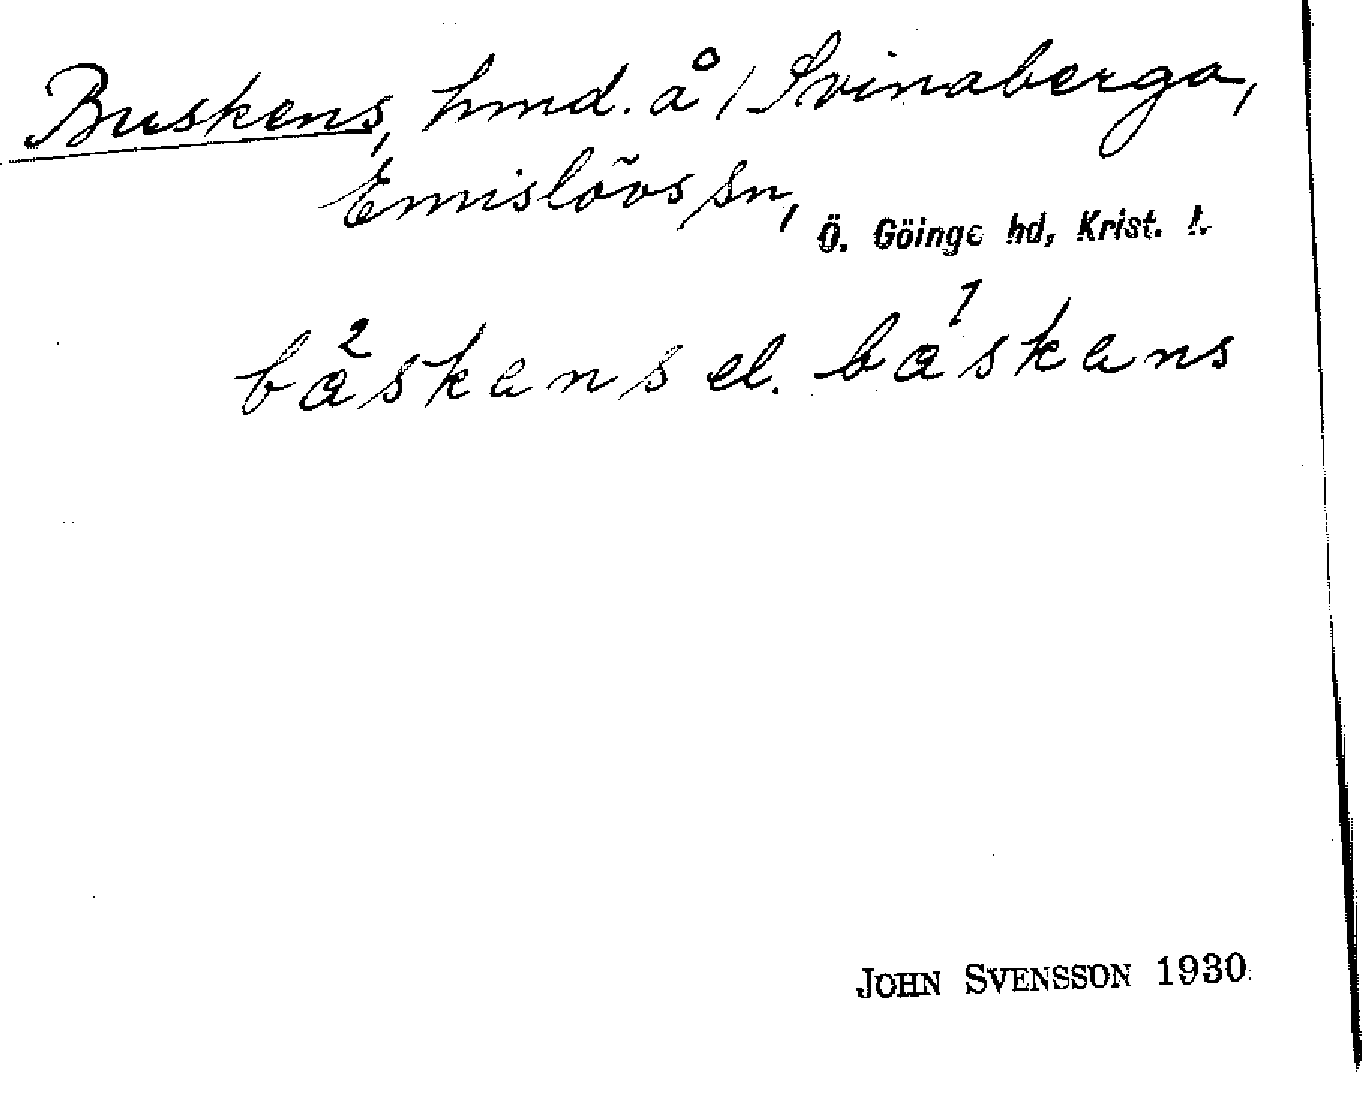 Buskens, hmd. å / Svinaberga,
Emislövs sn, Ö. Göinge hd, Krist. l.
ba²skans el. ba¹skans
JOHN SVENSSON 1930.